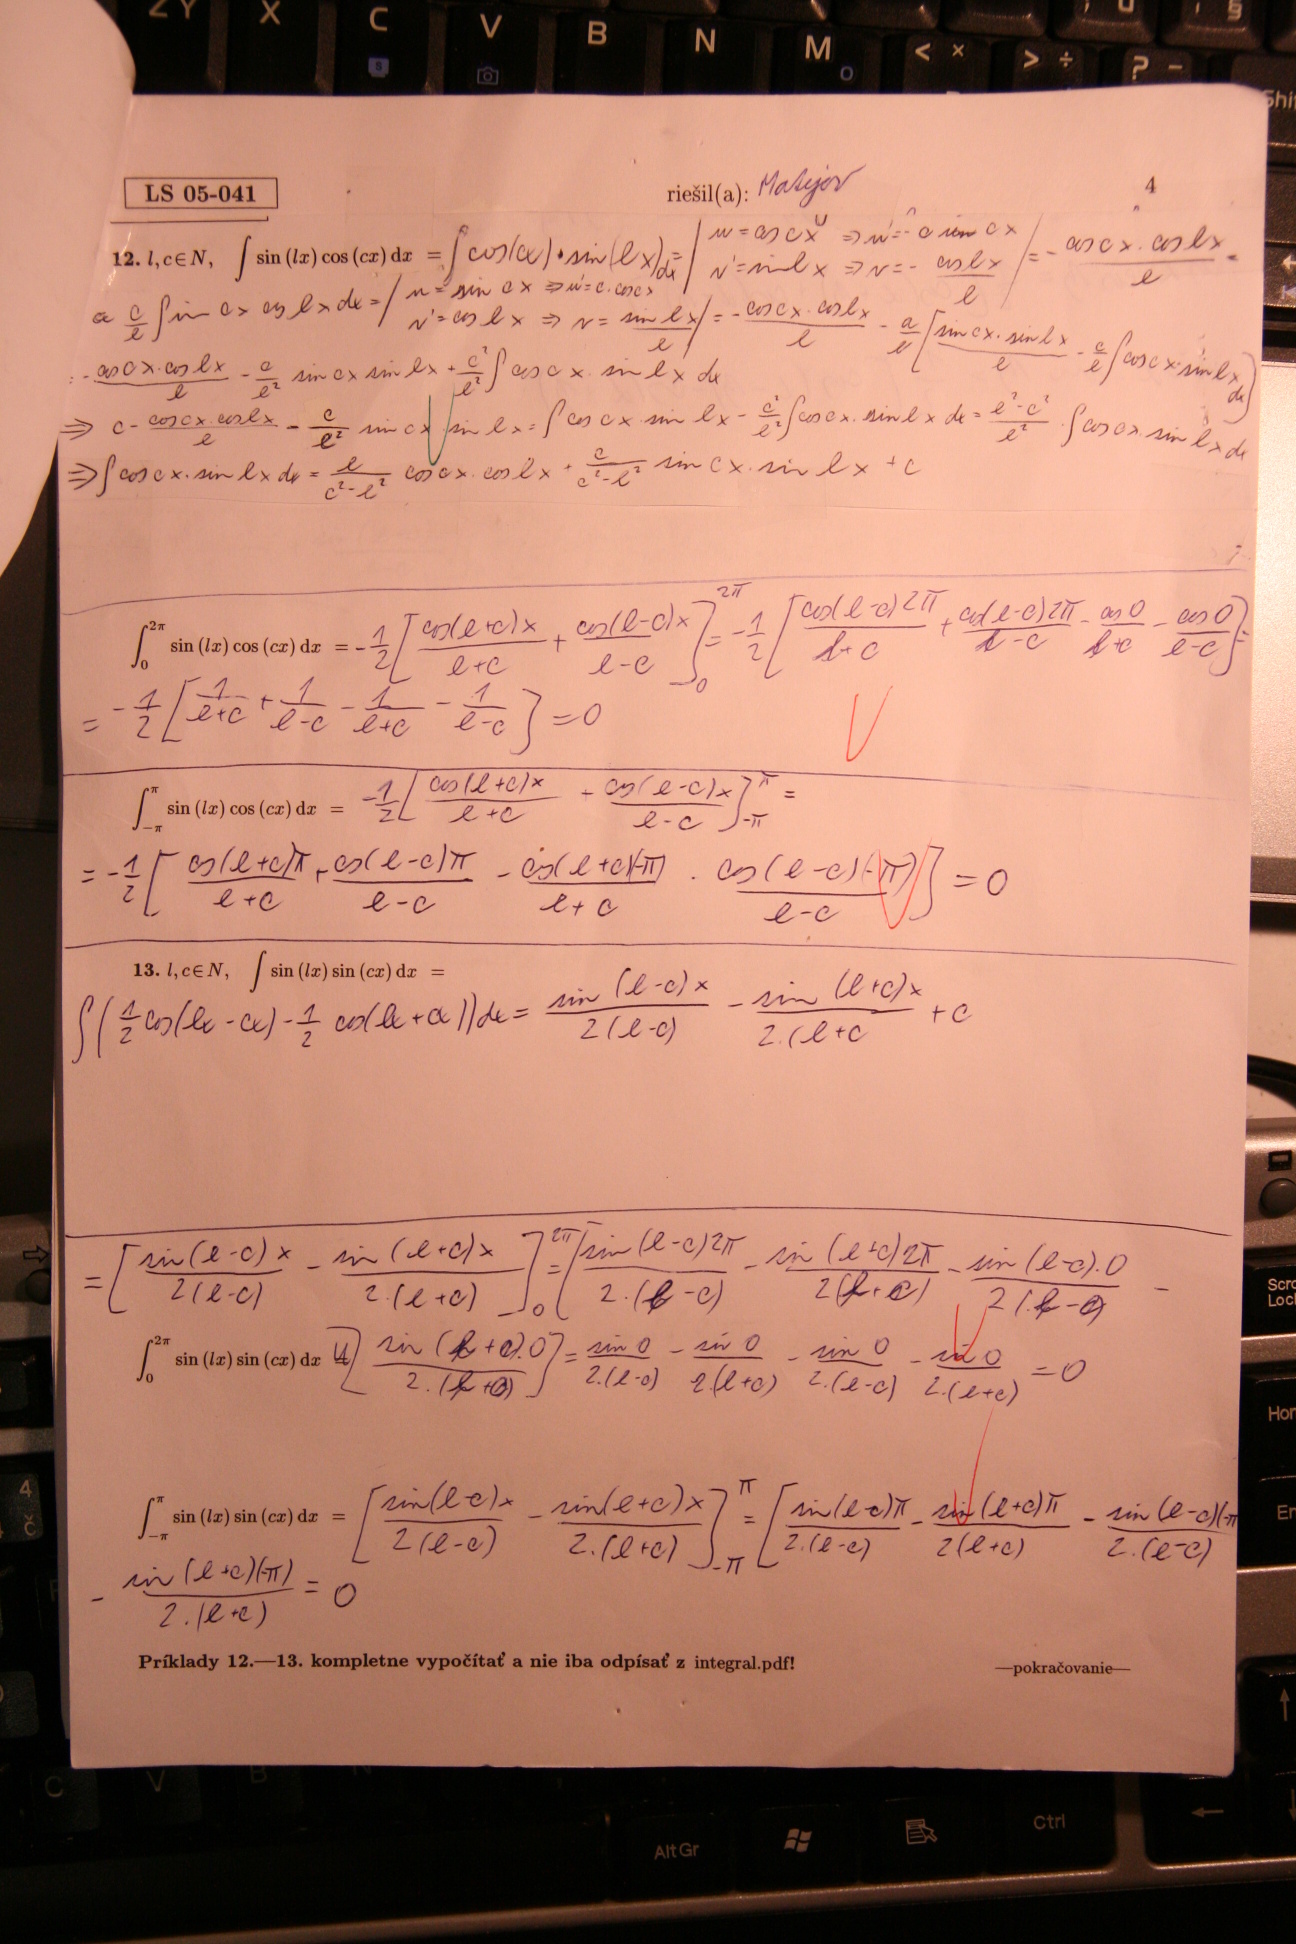 ZY X C V B N M < × > ÷ ? −
S O
Shi
LS 05-041 riešil(a): Matejov 4
12. l, c ∈ N, ∫ sin (lx) cos (cx) dx = ∫ cos(cx) · sin(lx) dx = | u = cos cx ⇒ u' = - c sin cx / v' = sin lx ⇒ v = - cos lx / l | = - cos cx · cos lx / l -
c/l ∫ sin cx cos lx dx = | u = sin cx ⇒ u' = c · cos cx / v' = cos lx ⇒ v = sin lx / l | = - cos cx · cos lx / l - c/l [ sin cx · sin lx / l - c/l ∫ cos cx · sin lx dx ]
= - cos cx · cos lx / l - c/l² sin cx sin lx + c²/l² ∫ cos cx · sin lx dx
⇒ c - cos cx · cos lx / l - c/l² sin cx sin lx = ∫ cos cx · sin lx - c²/l² ∫ cos cx · sin lx dx = l² - c² / l² · ∫ cos cx · sin lx dx
⇒ ∫ cos cx · sin lx dx = l / c² - l² cos cx · cos lx + c / c² - l² sin cx · sin lx + c
∫₀^2π sin (lx) cos (cx) dx = - 1/2 [ cos(l+c)x / l+c + cos(l-c)x / l-c ]₀^2π = - 1/2 [ cos(l-c)2π / l+c + cos(l-c)2π / l-c - cos 0 / l+c - cos 0 / l-c ] =
= - 1/2 [ 1 / l+c + 1 / l-c - 1 / l+c - 1 / l-c ] = 0
∫₋π^π sin (lx) cos (cx) dx = - 1/2 [ cos(l+c)x / l+c + cos(l-c)x / l-c ]₋π^π =
= - 1/2 [ cos(l+c)π / l+c + cos(l-c)π / l-c - cos(l+c)(-π) / l+c - cos(l-c)(-π) / l-c ] = 0
13. l, c ∈ N, ∫ sin (lx) sin (cx) dx =
∫ ( 1/2 cos(lx - cx) - 1/2 cos(lx + cx) ) dx = sin (l-c)x / 2(l-c) - sin (l+c)x / 2.(l+c + c
= [ sin (l-c)x / 2(l-c) - sin (l+c)x / 2.(l+c) ]₀^2π = [ sin (l-c)2π / 2.(l-c) - sin (l+c)2π / 2(l+c) - sin (l-c).0 / 2(l-c) -
∫₀^2π sin (lx) sin (cx) dx sin (l+c).0 / 2.(l+c) ] = sin 0 / 2.(l-c) - sin 0 / 2.(l+c) - sin 0 / 2.(l-c) - sin 0 / 2.(l+c) = 0
∫₋π^π sin (lx) sin (cx) dx = [ sin(l-c)x / 2(l-c) - sin(l+c)x / 2.(l+c) ]₋π^π = [ sin(l-c)π / 2.(l-c) - sin(l+c)π / 2(l+c) - sin (l-c)(-π / 2.(l-c)
- sin (l+c)(-π) / 2.(l+c) = 0
Príklady 12.—13. kompletne vypočítať a nie iba odpísať z integral.pdf! —pokračovanie—
Scro
Lock
Hon
4
Č
En
C V B N
Alt Gr Ctrl